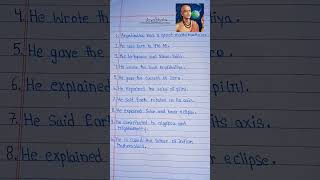 Aryabhatta
1. Aryabhatta was a great mathematician.
2. He was born in 476 AD.
4. He wrote the book Aryabhatiya.
5. He gave the concept of Zero.
6. He explained the value of pi(π).
7. He said Earth rotates on its axis.
8. He explained Solar and lunar eclipse.
9. He contributed to algebra and
trigonometry.
10. He is called the father of Indian
Mathematics.
4. He wrote
5. He gave the
6. He explained
7. He said Earth
8. He explained
iya.
pi(π).
its axis.
eclipse.